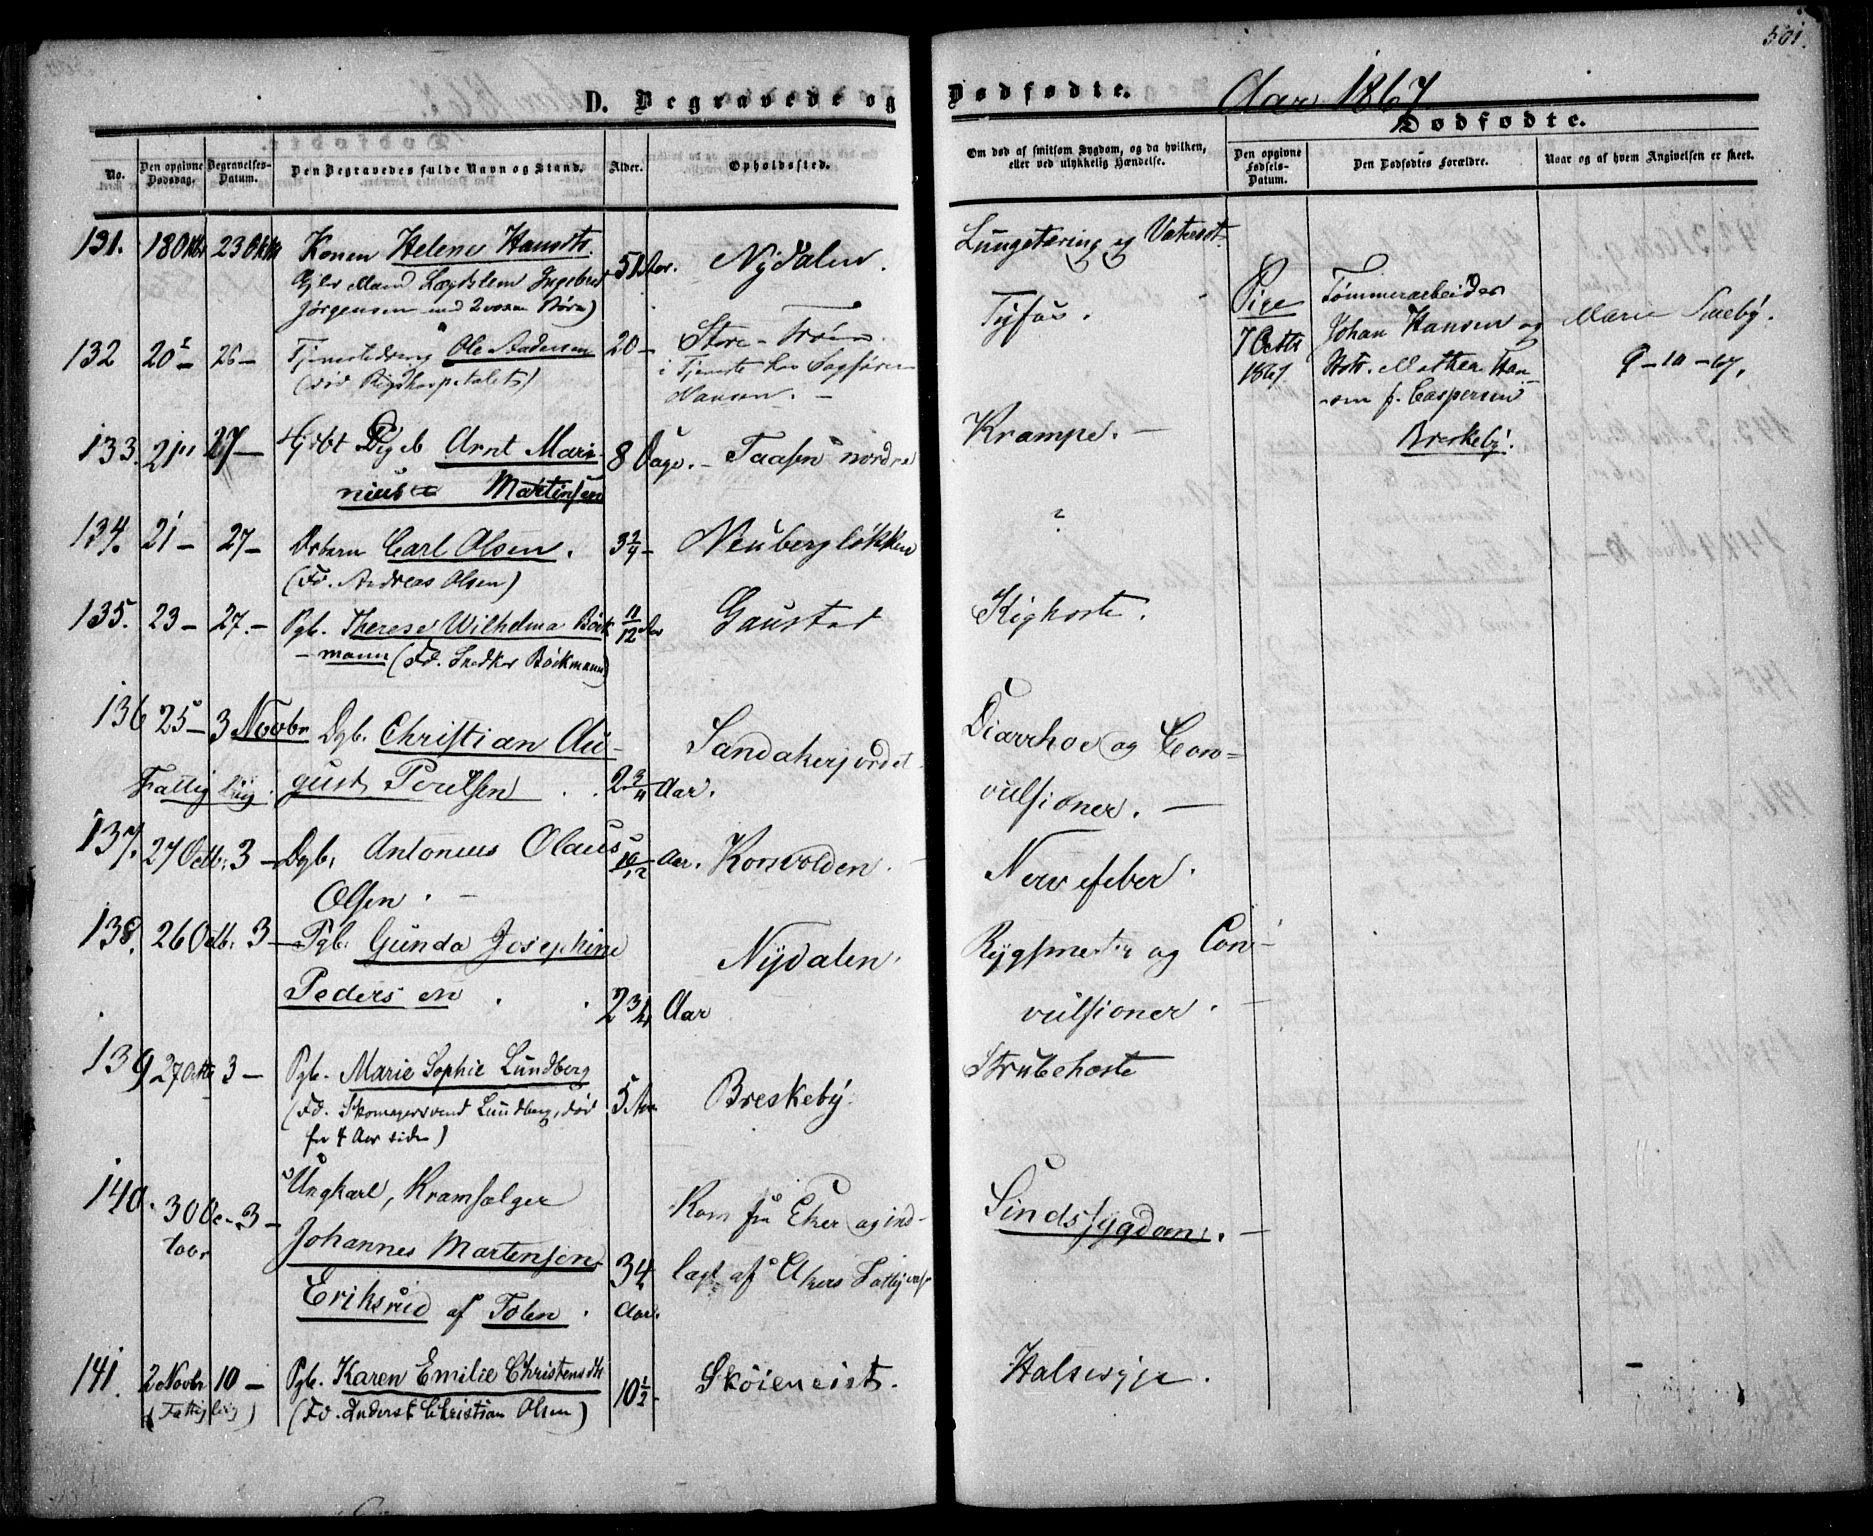 501.
D. Begravede og Dødfødte. Aar 1867
Dødfødte.
No.
Den opgivne Dødsdag.
Begravelses-Datum.
Den Begravedes fulde Navn og Stand.
Alder.
Opholdssted.
Om død af smitsom Sygdom, og da hvilken, eller ved ulykkelig Hændelse.
Den opgivne Fødsels-Datum.
Den Dødfødtes Forældre.
Naar og af hvem Angivelsen er skeet.
131. 18 Oktbr 23 Oktbr Konen Helene Hansdtr. 51 Aar. Nydalen. Lungetæring og Vatersot
Mand Lægdslem Ingebret
Jørgensen med 2 voxne Børn)
132 20 26 - Tjenestedreng Ole Andersen 20 - Store - Tyfus.
(død Rigshospitalet) i Tjeneste hos Sagfører
Hansen. -
133. 21 27 - Hjdbt Dgeb Arnt Mari- 8 Dage. - Taasen nordre Krampe. -
nius Martinsen
134. 21 - 27 - Carl Olsen. 3 - Neubergløkken ?
(Fd. Andreas Olsen)
135. 23 - 27. - Pgb. Therese Wilhelma Böck- 11/12 Aar Gaustad Kighoste.
mann (Fd. Snedker Böckmann)
136 25 - 3 Novbr Dgb. Christian Au- Sandakerjordet. Diarrhoe og Con-
Fattig Lig. gust Poulsen . . 2 Aar. vulsioner. -
137. 27 Octb. 3 - Dgb. Antonius Olaus 10/12 Aar. Korsvolden. Nervefeber.
Olsen. -
138. 26 Octb. 3 - Pgb. Gunda Josephine Nydalen. og Con-
Pedersen . . 2 3/4 Aar vulsioner.
139 27 3 - Pgb. Marie Sophie Lundberg 5 Aar Breskeby. Strubehoste
(Fd. Skomagersvend Lundberg, død
for 4 Aar siden)
140. 30 Oc- 3 - Ungkarl, Kramsælger Kom fra Eker og ind- Sindssygdom. -
tobr Johannes Martensen 34 lagt af Akers Fattigvæs
Eriksrud af Tolen. Aar.
141. 2 Novbr 10 - Pgb. Karen Emilie Christensdtr 10 1/2 - Skøieneiet. Halsesyge.
(Fattiglig) (Fd. Inderst Christian Olsen)
Pige
7 Octb
1867
Tømmerarbeider
Johan Hansen og
Hstr. Mathea Han-
sen f. Caspersen
Breskeby.
Marie Smeby.
9 - 10 - 67.